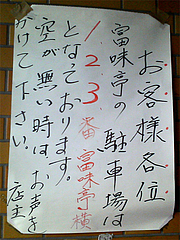 お客様各位
富味亭の駐車場は
1.2.3番富味亭横
となております。
空が無い時はお声を
かけて下さい。
店主